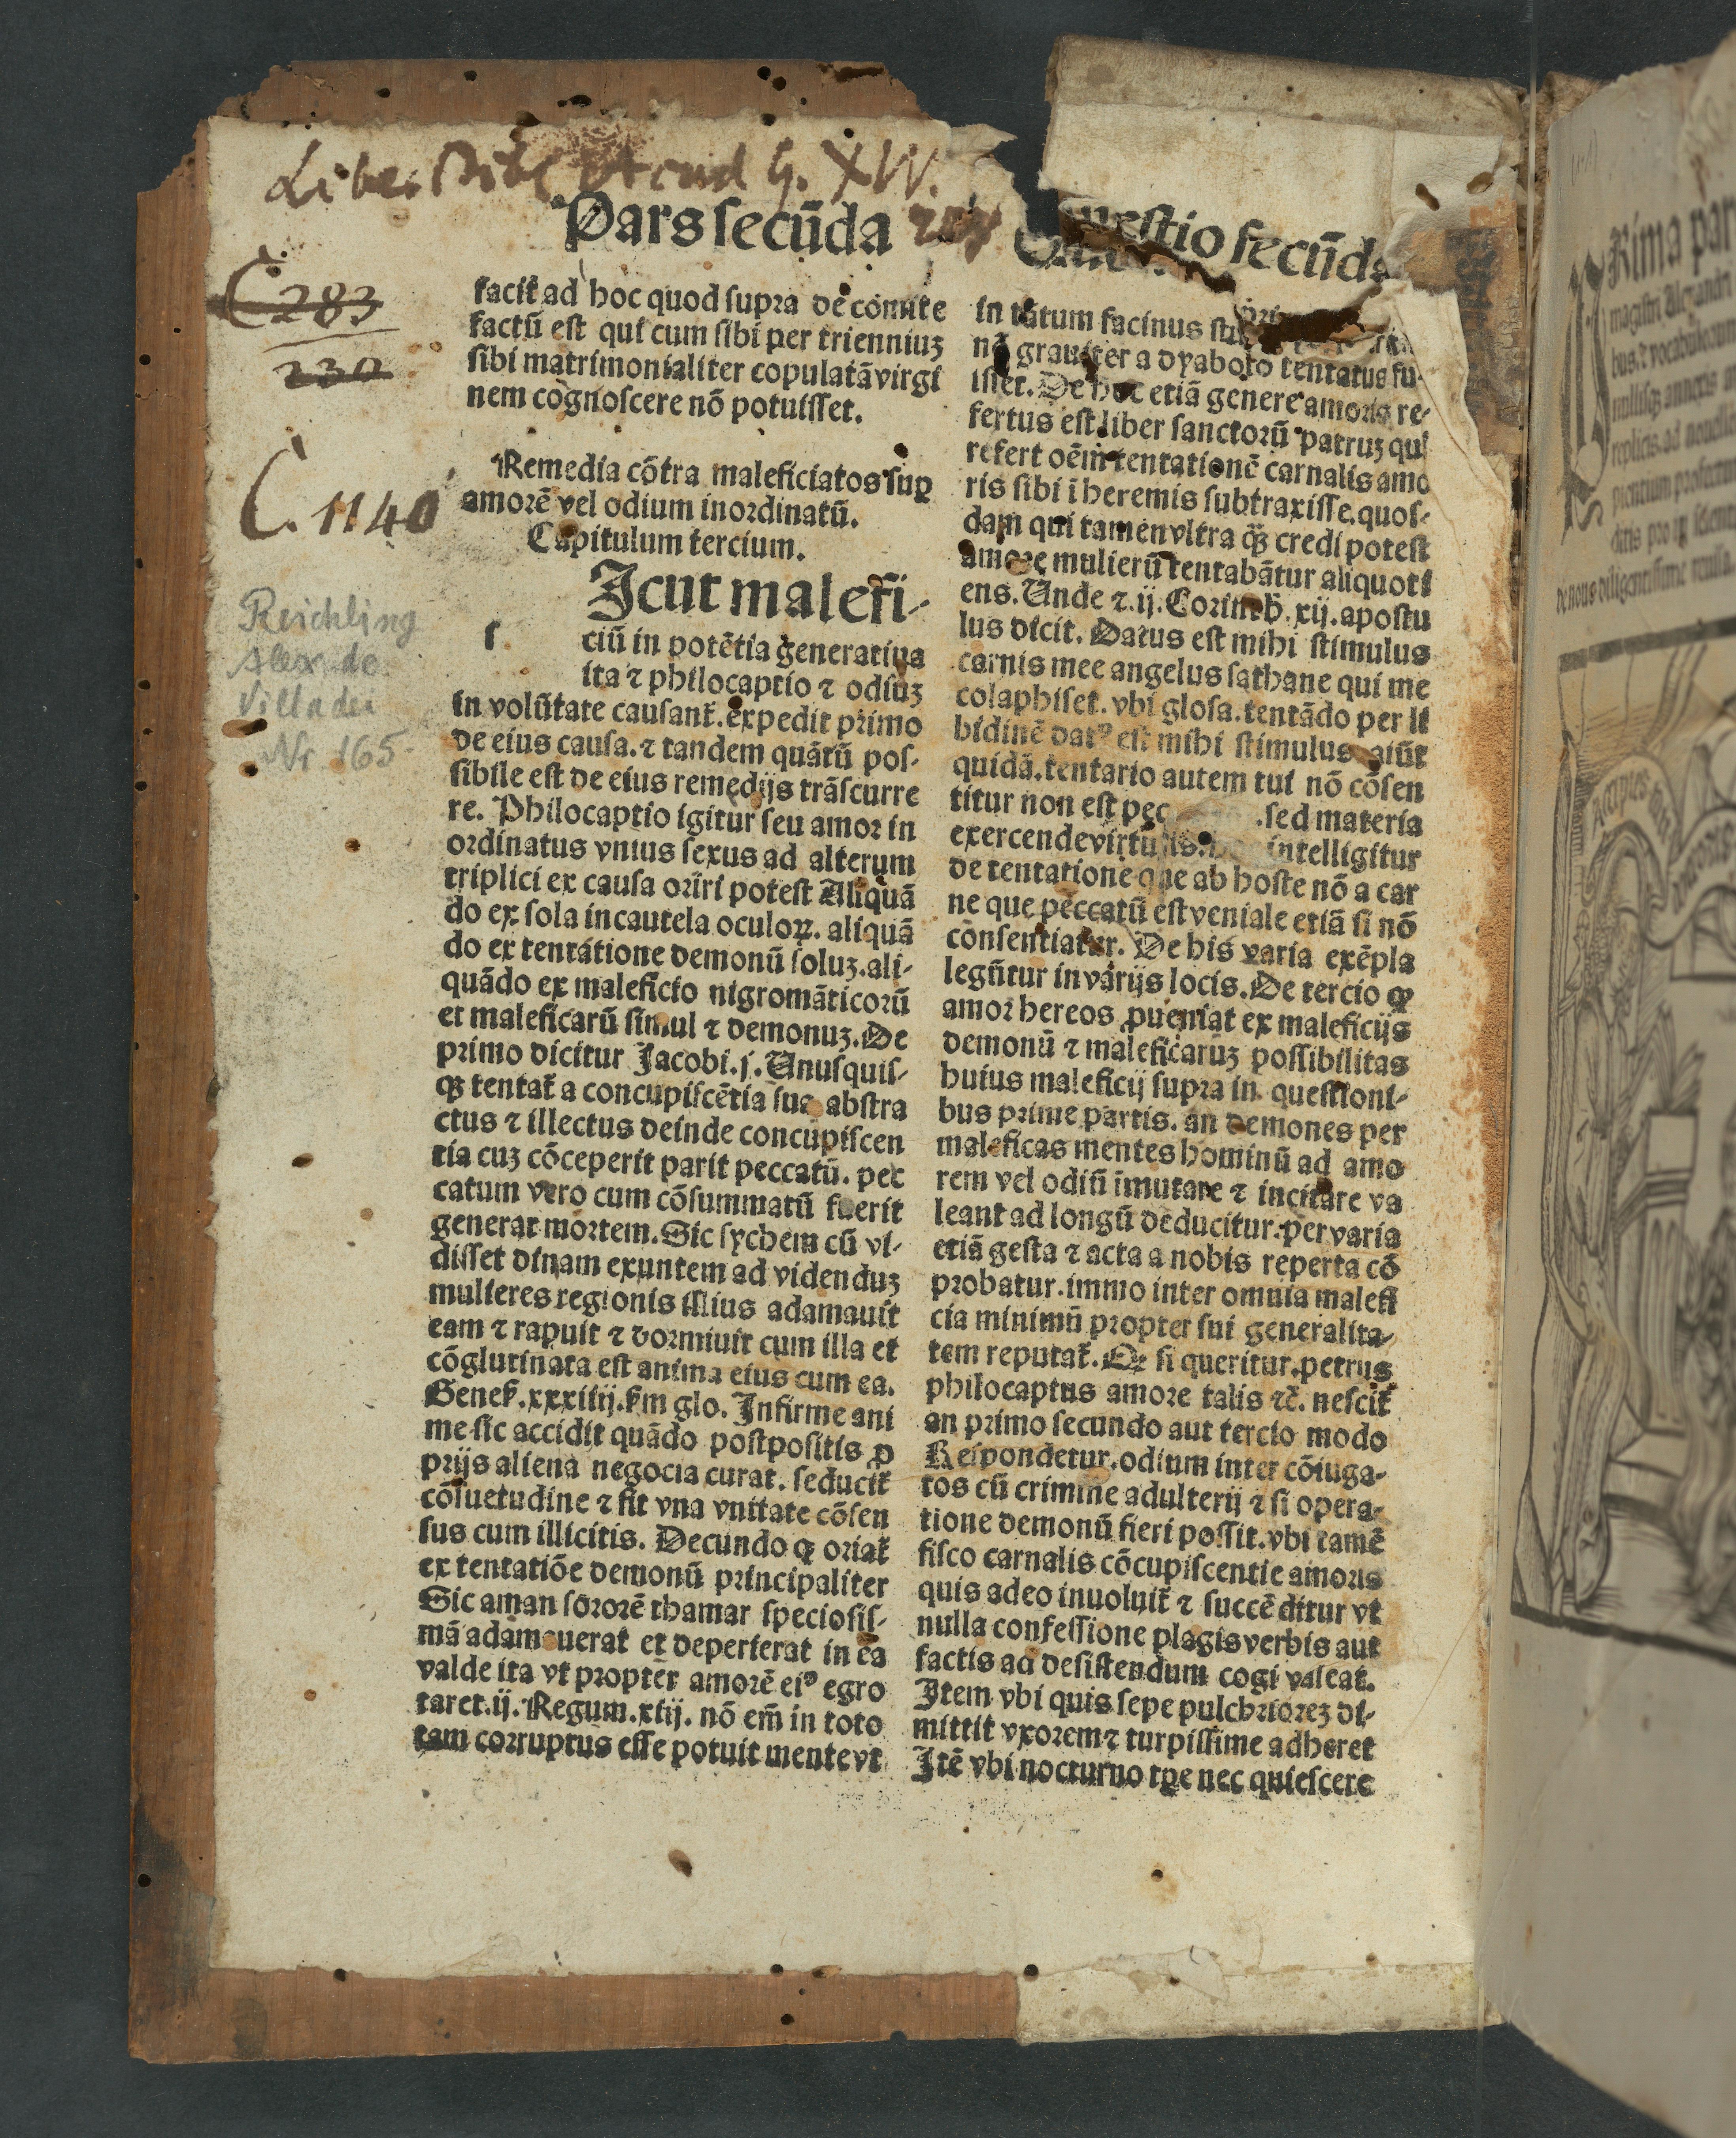 Pars secūda
Questio secūda
C 283
230
C. 1140
Reichling
Alex. de
Villa dei
Nr. 165.
facit̄ ad hoc quod supra de comite
factū est qui cum sibi per trienniuʒ
sibi matrimonialiter copulatā virgi
nem cognoscere nō potuisset.
Remedia cōtra maleficiatos suꝑ
amorē vel odium inordinatū.
Capitulum tercium.
Icut malefi-
s
ciū in potētia generatiua
ita ⁊ philocaptio ⁊ odiuʒ
in volūtate causant̄. expedit primo
de eius causa. ⁊ tandem quātū pos-
sibile est de eius remedijs trāscurre
re. Philocaptio igitur seu amor in
ordinatus vnius sexus ad alterum
triplici ex causa oriri potest Aliquā
do ex sola incautela oculoꝝ. aliquā
do ex tentatione demonū soluʒ. ali-
quādo ex maleficio nigromāticorū
et maleficarū simul ⁊ demonuʒ. De
primo dicitur Jacobi. j. Unusquis-
qʒ tentat̄ a concupiscētia sua abstra
ctus ⁊ illectus deinde concupiscen
tia cuʒ cōceperit parit peccatū. pec
catum vero cum cōsummatū fuerit
generat mortem. Sic sychem cū vi-
disset dinam exuntem ad videnduʒ
mulieres regionis illius adamauit
eam ⁊ rapuit ⁊ dormiuit cum illa et
cōglutinata est anima eius cum ea.
Geneꝭ. xxxiiij. ꝭm glo. Infirme ani
me sic accidit quādo postpositis ꝓ
prijs aliena negocia curat. seducit̄
cōsuetudine ⁊ fit vna vnitate cōsen
sus cum illicitis. Decundo ꝙ oriat̄
ex tentatiōe demonū principaliter
Sic aman sororē thamar speciosis-
mā adamauerat et deperierat in ea
valde ita vt propter amorē eiꝰ egro
taret. ij. Regum. xiij. nō em̄ in toto
tam corruptus esse potuit mente vt
in tātum facinus
nō grauiter a dyabolo tentatus fu-
isset. De hoc etiā genere amoris re-
fertus est liber sanctorū patruʒ qui
refert oēm tentationē carnalis amo
ris sibi ī heremis subtraxisse. quos-
dam qui tamen vltra qʒ credi potest
amore mulierū tentabātur aliquoti
ens. Unde ⁊. ij. Corinth. xij. apostu
lus dicit. Datus est mihi stimulus
carnis mee angelus sathane qui me
colaphiset. vbi glosa. tentādo per li
bidinē datꝰ est mihi stimulus. aiūt
quidā. tentatio autem cui nō cōsen
titur non est pec .sed materia
exercende virtutis. intelligitur
de tentatione que ab hoste nō a car
ne que peccatū est veniale etiā si nō
consentiatur. De his varia exēpla
legūtur in varijs locis. De tercio ꝙ
amor hereos ꝓueniat ex maleficijs
demonū ⁊ maleficaruʒ possibilitas
huius maleficij supra in questioni-
bus prime partis. an demones per
maleficas mentes hominū ad amo
rem vel odiū imutare ⁊ incitare va
leant ad longū deducitur. per varia
etiā gesta ⁊ acta a nobis reperta cō
probatur. immo inter omnia malefi
cia minimū propter sui generalita-
tem reputat̄. Qr si queritur. petrus
philocaptus amore talis ⁊c̄. nescit̄
an primo secundo aut tercio modo
Respondetur. odium inter cōiuga-
tos cū crimine adulterij ⁊ si opera-
tione demonū fieri possit. vbi tamē
fisco carnalis cōcupiscentie amoris
quis adeo inuoluit̄ ⁊ succēditur vt
nulla confessione plagis verbis aut
factis ad desistendum cogi valeat.
Item vbi quis sepe pulchrioreʒ di-
mittit vxorem ⁊ turpissime adheret
Itē vbi nocturno tꝑe nec quiescere
Rima par